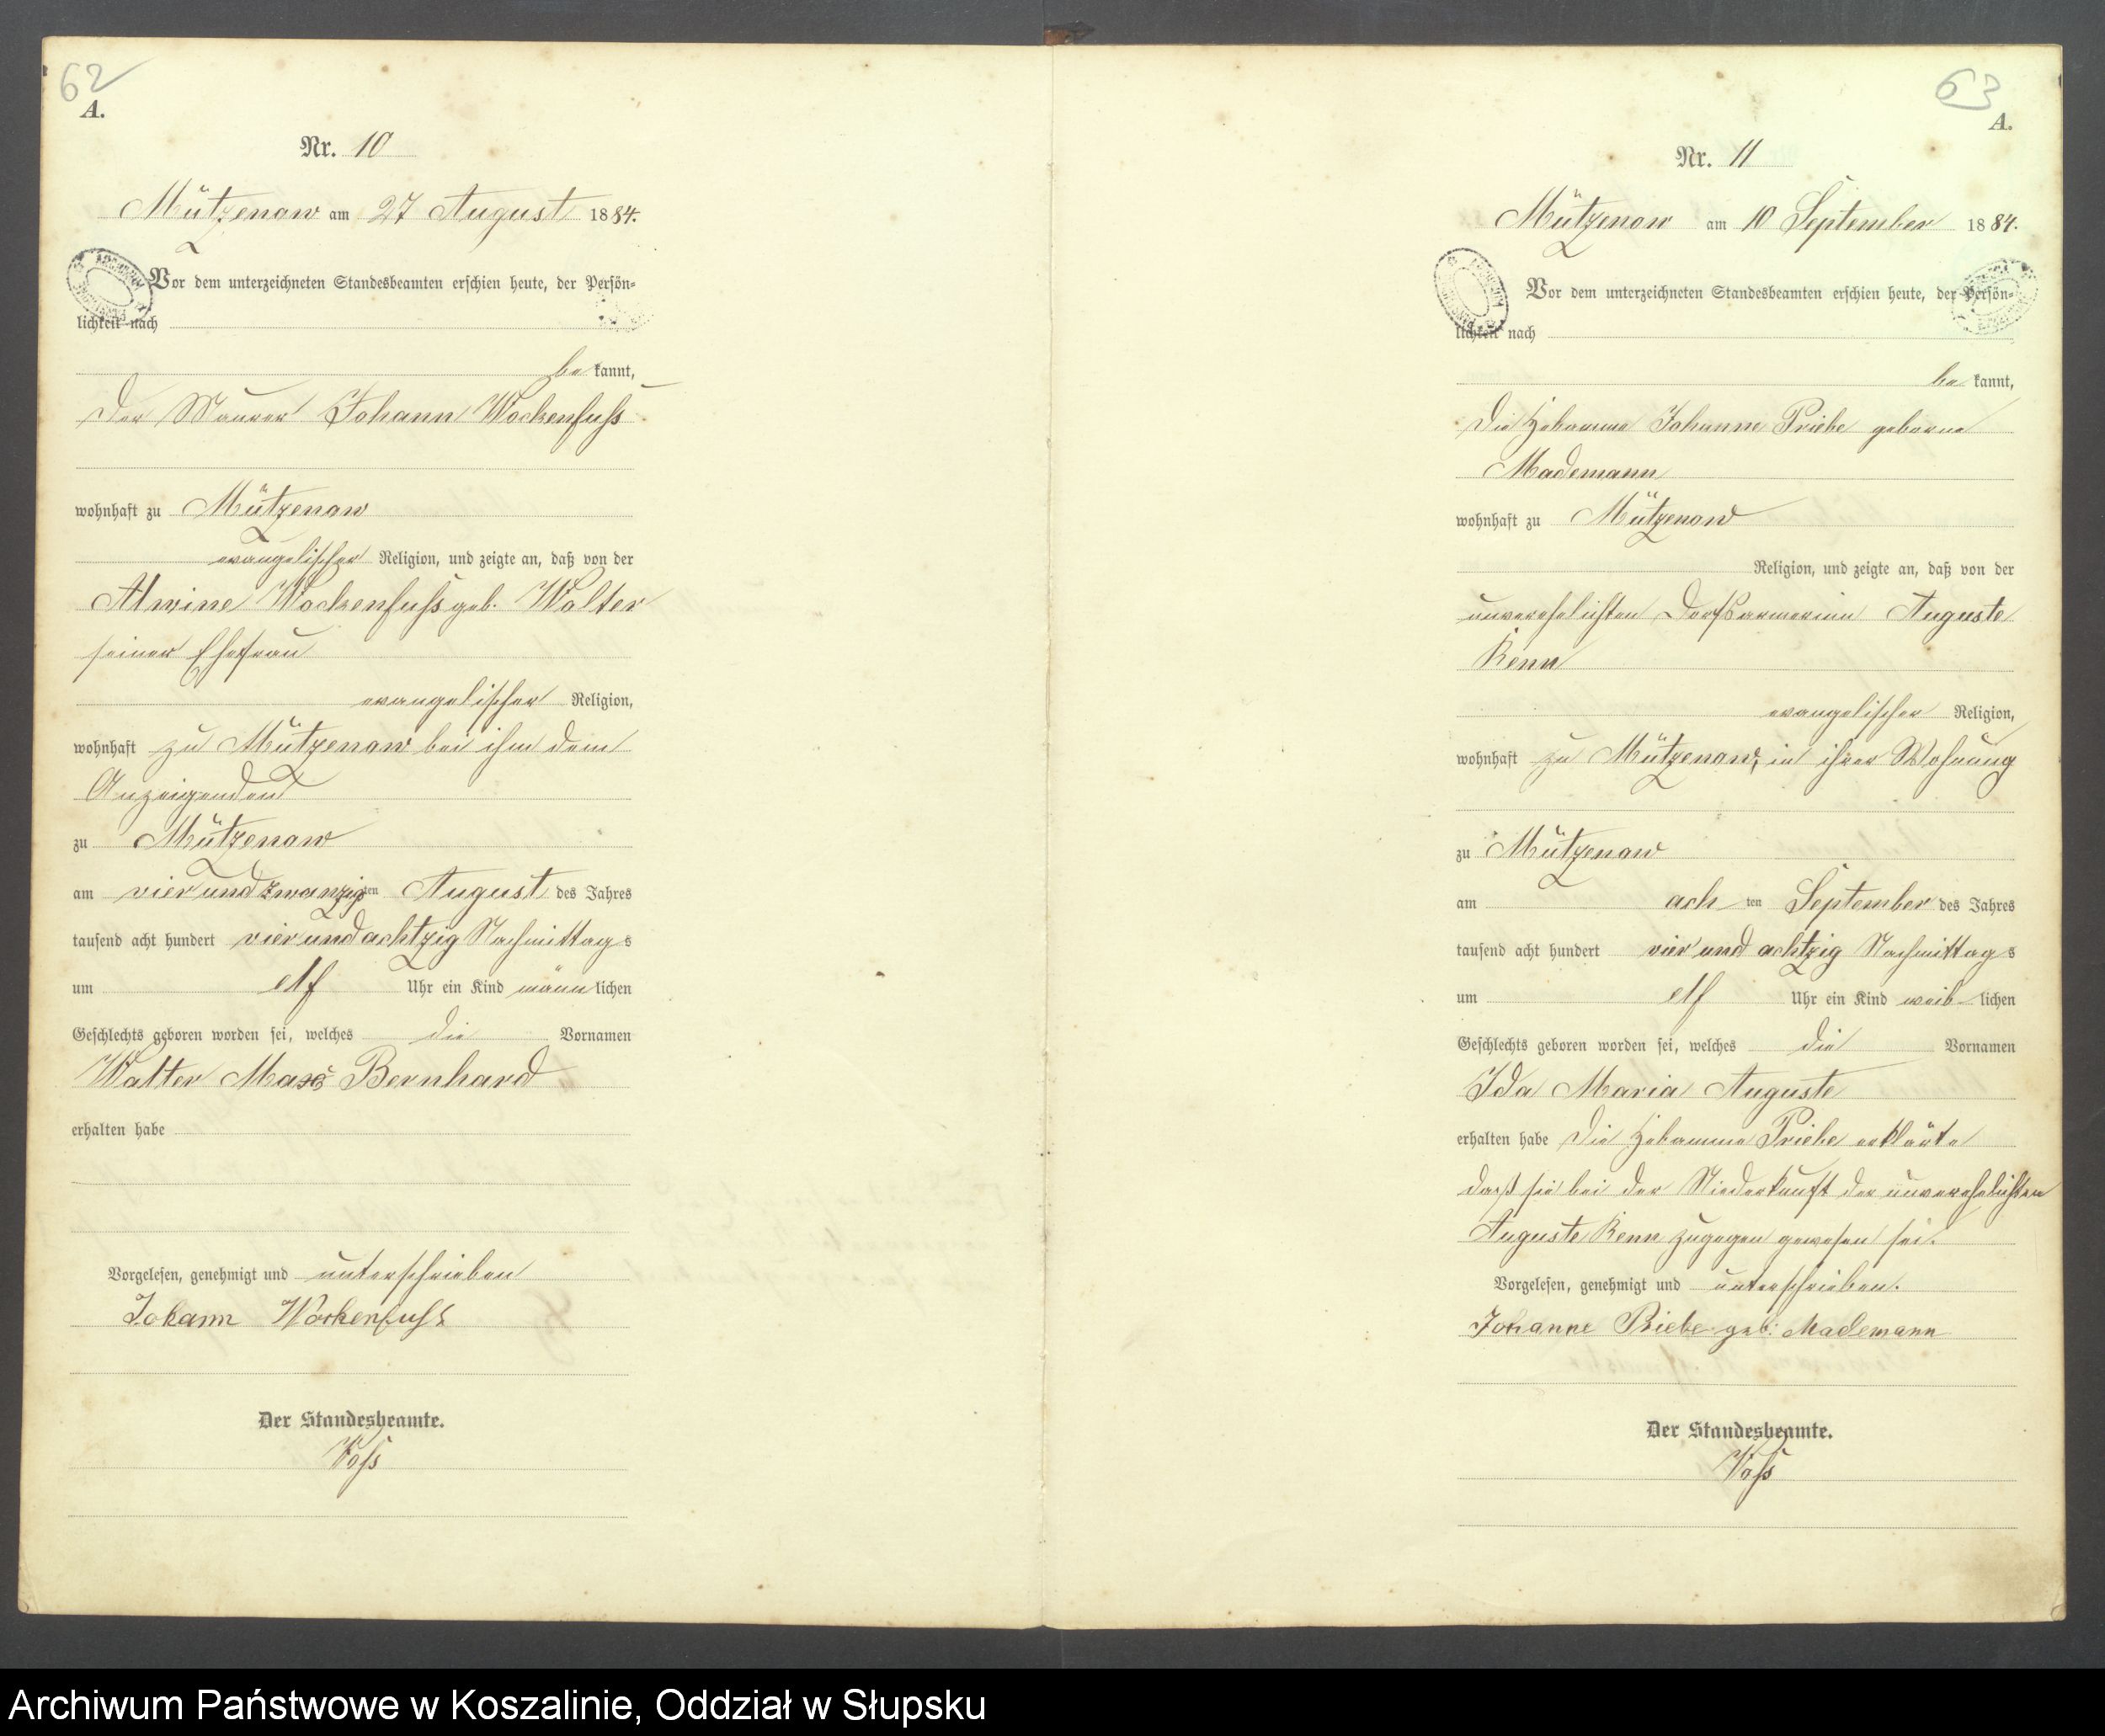 62
A.
Nr. 10
Mützenow am 27 August 1884.
Vor dem unterzeichneten Standesbeamten erschien heute, der Persön-
lichkeit nach
be kannt,
Der Maurer Johann Wockenfuß
wohnhaft zu Mützenow
evangelischer Religion, und zeigte an, daß von der
Alwine Wockenfuß geb. Wolter
seiner Ehefrau
evangelischer Religion,
wohnhaft zu Mützenow bei ihm dem
Anzeigenden
zu Mützenow
am vier und zwanzigsten August des Jahres
tausend acht hundert vier und achtzig Nachmittags
um elf Uhr ein Kind männlichen
Geschlechts geboren worden sei, welches die Vornamen
Walter Max Bernhard
erhalten habe
Vorgelesen, genehmigt und unterschrieben
Johann Wockenfuß
Der Standesbeamte.
Voß
63
A.
Nr. 11
Mützenow am 10 September 1884.
Vor dem unterzeichneten Standesbeamten erschien heute, der Persön-
lichkeit nach
be kannt,
die Hebamme Johanne Priebe geborne
Mademann
wohnhaft zu Mützenow
Religion, und zeigte an, daß von der
unverehelichten Dorfsarmerinn Auguste
Renn
evangelischer Religion,
wohnhaft zu Mützenow, in ihrer Wohnung
zu Mützenow
am ach ten September des Jahres
tausend acht hundert vier und achtzig Nachmittags
um elf Uhr ein Kind weib lichen
Geschlechts geboren worden sei, welches die Vornamen
Ida Maria Auguste
erhalten habe die Hebamme Priebe erklärte
daß sie bei der Niederkunft der unverehelichten
Auguste Renn zugegen gewesen sei.
Vorgelesen, genehmigt und unterschrieben.
Johanne Priebe geb: Mademann
Der Standesbeamte.
Voß
Archiwum Państwowe w Koszalinie, Oddział w Słupsku